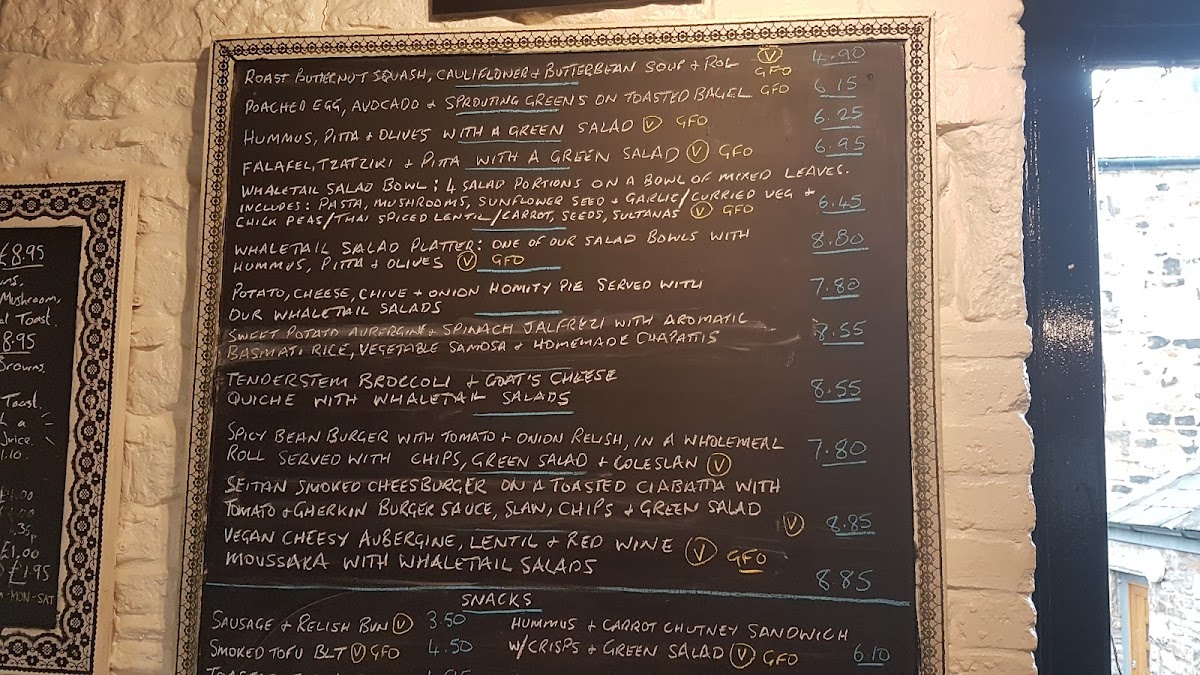 £8.95
Mushroom,
Toast.
8.95
Browns.
Toast.
a
Juice.
1.10.
£1.00
£1.00
£1.95
MON-SAT
ROAST BUTTERNUT SQUASH, CAULIFLOWER + BUTTERBEAN SOUP + ROLL V GFO 4.90
POACHED EGG, AVOCADO + SPROUTING GREENS ON TOASTED BAGEL GFO 6.15
HUMMUS, PITTA + OLIVES WITH A GREEN SALAD V GFO 6.25
FALAFEL, TZATZIKI + PITTA WITH A GREEN SALAD V GFO 6.95
WHALETAIL SALAD BOWL: 4 SALAD PORTIONS ON A BOWL OF MIXED LEAVES.
INCLUDES: PASTA, MUSHROOMS, SUNFLOWER SEED + GARLIC/CURRIED VEG +
CHICK PEAS/THAI SPICED LENTIL/CARROT, SEEDS, SULTANAS V GFO 6.45
WHALETAIL SALAD PLATTER: ONE OF OUR SALAD BOWLS WITH
HUMMUS, PITTA + OLIVES V GFO 8.80
POTATO, CHEESE, CHIVE + ONION HOMITY PIE SERVED WITH
OUR WHALETAIL SALADS 7.80
SWEET POTATO AUBERGINE + SPINACH JALFREZI WITH AROMATIC
BASMATI RICE, VEGETABLE SAMOSA + HOMEMADE CHAPATIS 8.55
TENDERSTEM BROCCOLI + GOAT'S CHEESE
QUICHE WITH WHALETAIL SALADS 8.55
SPICY BEAN BURGER WITH TOMATO + ONION RELISH, IN A WHOLEMEAL
ROLL SERVED WITH CHIPS, GREEN SALAD + COLESLAW V 7.80
SEITAN SMOKED CHEESBURGER ON A TOASTED CIABATTA WITH
TOMATO + GHERKIN BURGER SAUCE, SLAW, CHIPS + GREEN SALAD V 8.85
VEGAN CHEESY AUBERGINE, LENTIL + RED WINE
MOUSSAKA WITH WHALETAIL SALADS V GFO 8.85
SNACKS
SAUSAGE + RELISH BUN V 3.50
SMOKED TOFU BLT V GFO 4.50
HUMMUS + CARROT CHUTNEY SANDWICH
W/CRISPS + GREEN SALAD V GFO 6.10